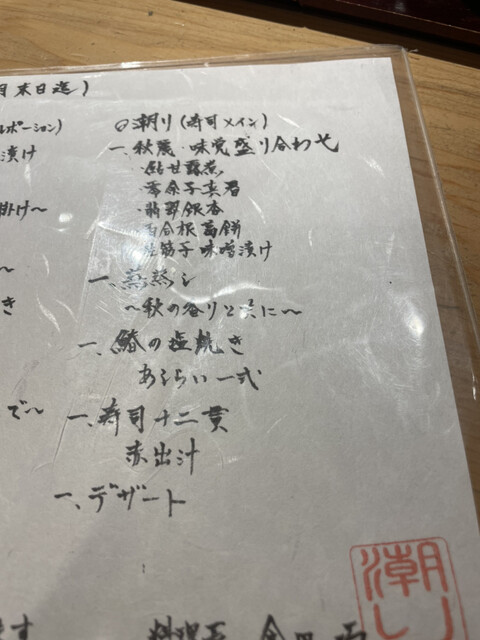 月末日迄)
ポーション)
漬け
掛け〜
〜
き
で〜
〇潮り(寿司メイン)
一、秋麗・味覚盛り合わせ
・鮎甘露煮
・零余子真君
・翡翠銀杏
百合根高餅
生筋子味噌漬け
一、蒸熟し
〜秋の香りと共に〜
一、鰆の塩焼き
あしらい一式
一、寿司十二貫
赤出汁
一、デザート
ます
料理長
潮り